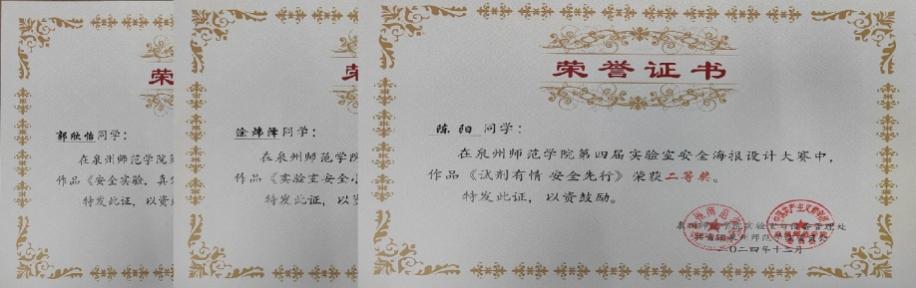 荣
郭欣怡同学:
在泉州师范学院第
作品《安全实验,真
特发此证,以资
荣
同学:
在泉州师范学院
作品《实验室安全
特发此证,以
荣誉证书
陈阳 同学:
在泉州师范学院第四届实验室安全海报设计大赛中,
作品《试剂有情 安全先行》荣获二等奖。
特发此证,以资鼓励。
管理处
二〇二四年十二月